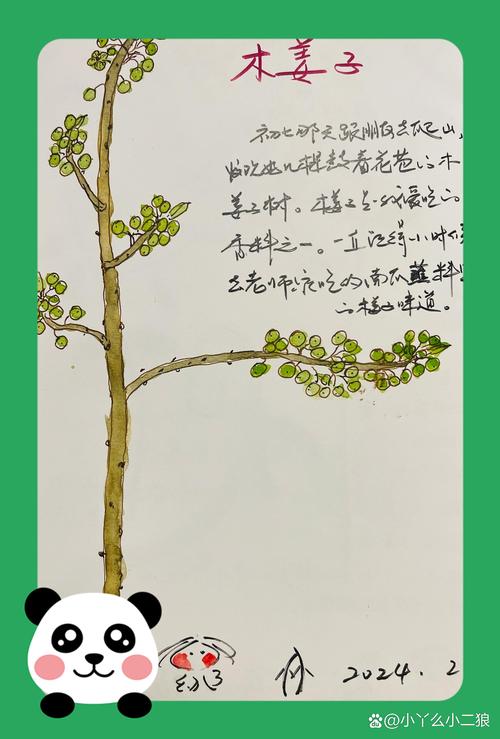 木姜子
初七那天跟朋友去爬山,
发现好几棵挂着花苞的木
姜子树。木姜子是我爱吃的
香料之一。一直记得小时候
去老师家吃的南瓜蘸料里
的木姜子味道。
2024.2
小丫么小二狼